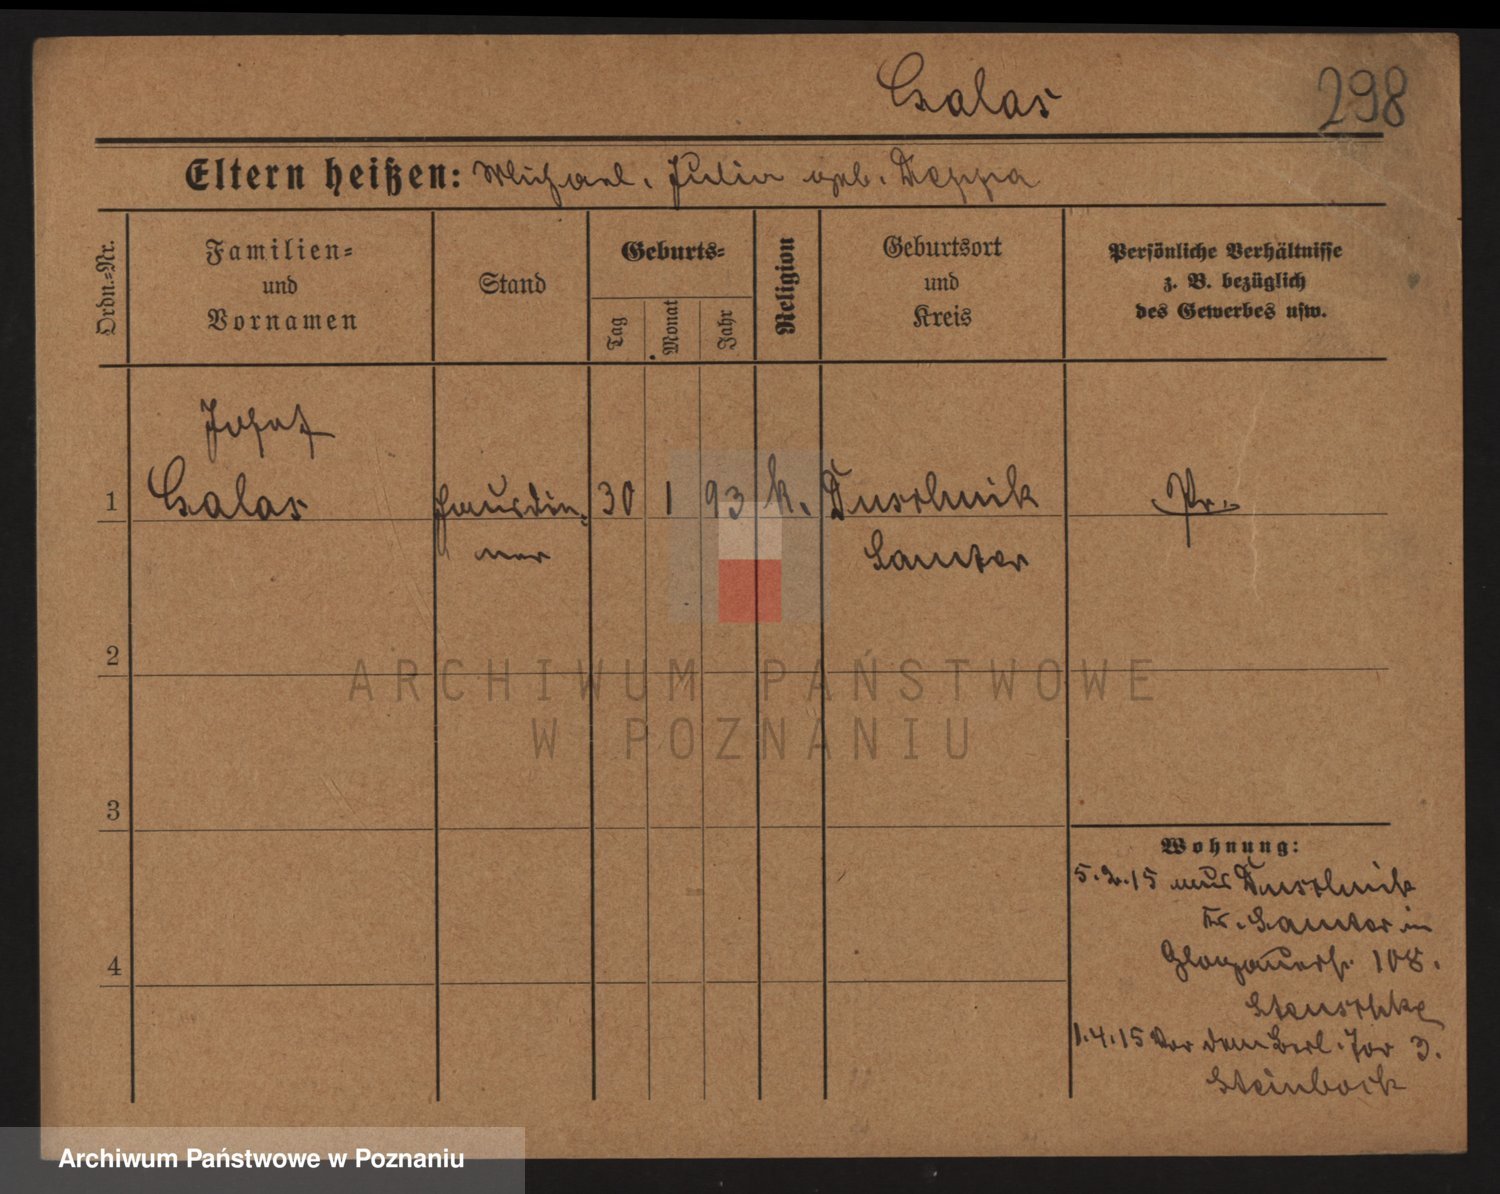 Galas
298
Eltern heißen: Michael. Julia geb. Deppa
Ordn.=Nr.
Familien=
und
Vornamen
Stand
Geburts=
Tag
Monat
Jahr
Religion
Geburtsort
und
Kreis
Persönliche Verhältnisse
z. B. bezüglich
des Gewerbes usw.
Josef
1 Galas Hausdie= 30 1 93 k. Duschnik Pr.
ner Samter
2
ARCHIWUM PAŃSTWOWE
W POZNANIU
3
Wohnung:
5.2.15 aus Duschnik
Kr. Samter in
Glogauerstr. 108.
4
1.4.15 Vor dem Berl. Tor 3.
Steinbock
Archiwum Państwowe w Poznaniu